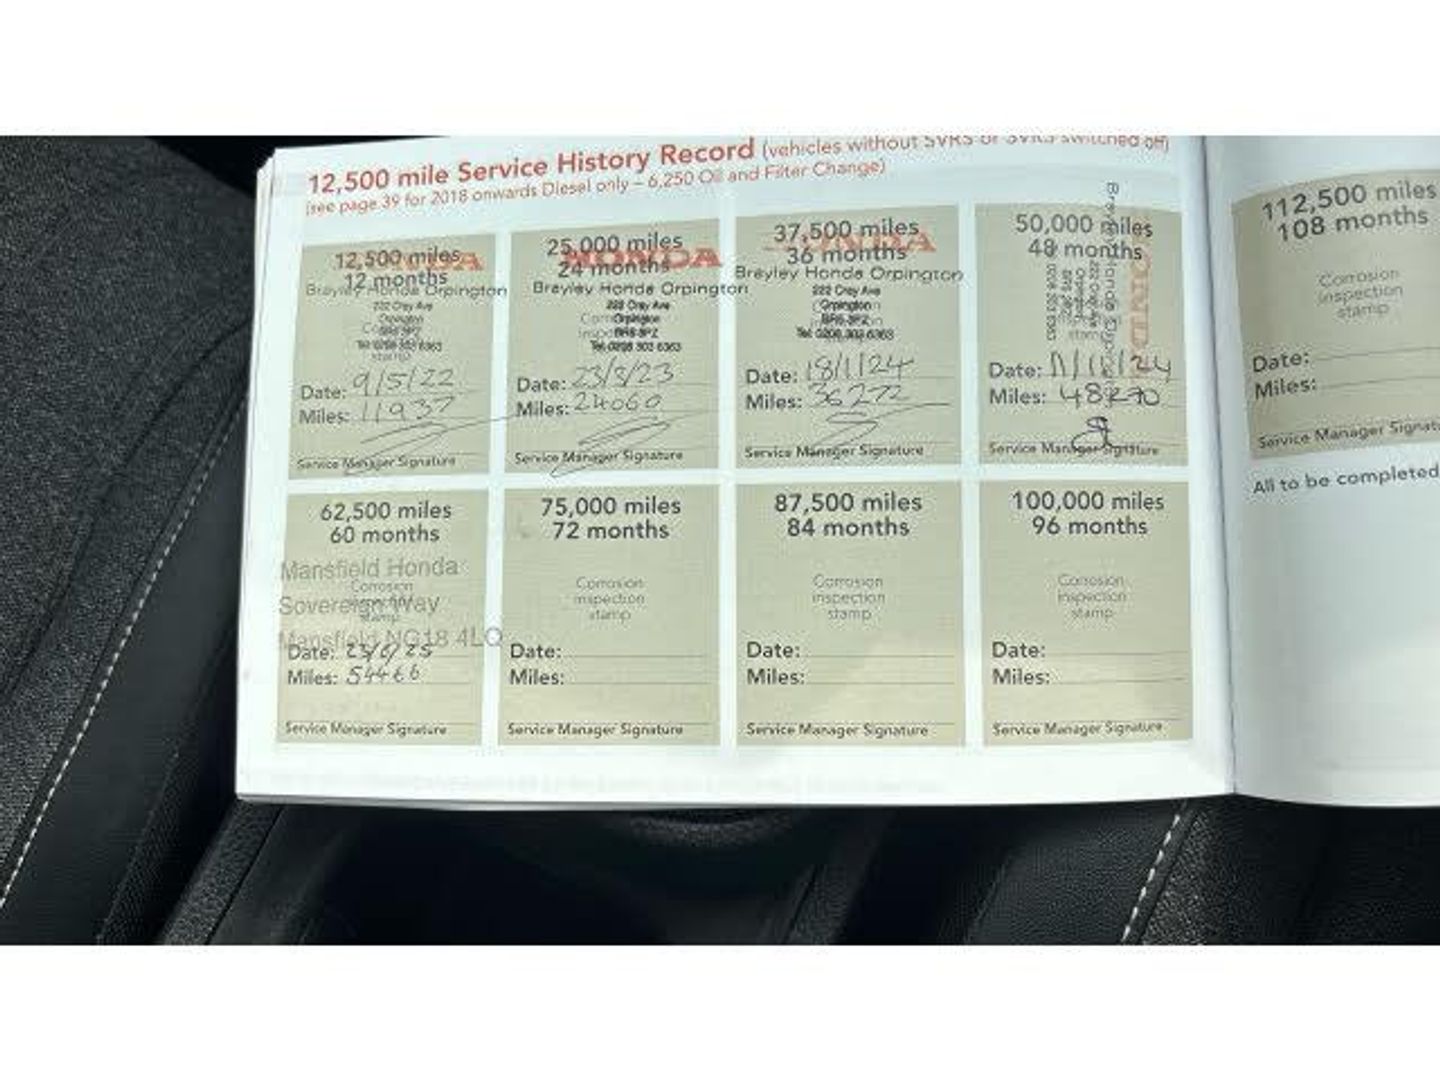 12,500 mile Service History Record (vehicles without SVRS or SVRS switched off)
(see page 39 for 2018 onwards Diesel only – 6,250 Oil and Filter Change)
12,500 miles
12 months
HONDA
Brayley Honda Orpington
222 Cray Ave
Orpington
BR5 3PZ
Tel: 0208 303 6363
Date: 9/5/22
Miles: 11937
Service Manager Signature
25,000 miles
24 months
HONDA
Brayley Honda Orpington
222 Cray Ave
Orpington
BR5 3PZ
Tel: 0208 303 6363
Date: 23/3/23
Miles: 24060
Service Manager Signature
37,500 miles
36 months
HONDA
Brayley Honda Orpington
222 Cray Ave
Orpington
BR5 3PZ
Tel: 0208 303 6363
Date: 18/1/24
Miles: 36272
Service Manager Signature
50,000 miles
48 months
HONDA
Brayley Honda Orpington
222 Cray Ave
Orpington
BR5 3PZ
0208 303 6363
Date: 11/11/24
Miles: 48270
Service Manager Signature
62,500 miles
60 months
Mansfield Honda
Corrosion
Sovereign Way
stamp
Mansfield NG18 4LQ
Date: 23/6/25
Miles: 54466
Service Manager Signature
75,000 miles
72 months
Corrosion
inspection
stamp
Date:
Miles:
Service Manager Signature
87,500 miles
84 months
Corrosion
inspection
stamp
Date:
Miles:
Service Manager Signature
100,000 miles
96 months
Corrosion
inspection
stamp
Date:
Miles:
Service Manager Signature
112,500 miles
108 months
Corrosion
inspection
stamp
Date:
Miles:
Service Manager
All to be completed